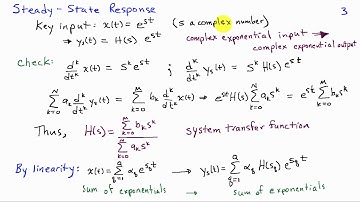 Steady-State Response 3
Key input: x(t) = e^{st} (s a complex number)
⇒ y_s(t) = H(s) e^{st} complex exponential input → complex exponential output
Check: d^k/dt^k x(t) = s^k e^{st} ; d^k/dt^k y_s(t) = s^k H(s) e^{st}
∑_{k=0}^{N} a_k d^k/dt^k y_s(t) = ∑_{k=0}^{M} b_k d^k/dt^k x(t) ⇒ e^{st} H(s) ∑_{k=0}^{N} a_k s^k = e^{st} ∑_{k=0}^{M} b_k s^k
Thus, H(s) = ∑_{k=0}^{M} b_k s^k / ∑_{k=0}^{N} a_k s^k system transfer function
By linearity: x(t) = ∑_{q=1}^{Q} α_q e^{s_q t} → y_s(t) = ∑_{q=1}^{Q} α_q H(s_q) e^{s_q t}
sum of exponentials → sum of exponentials